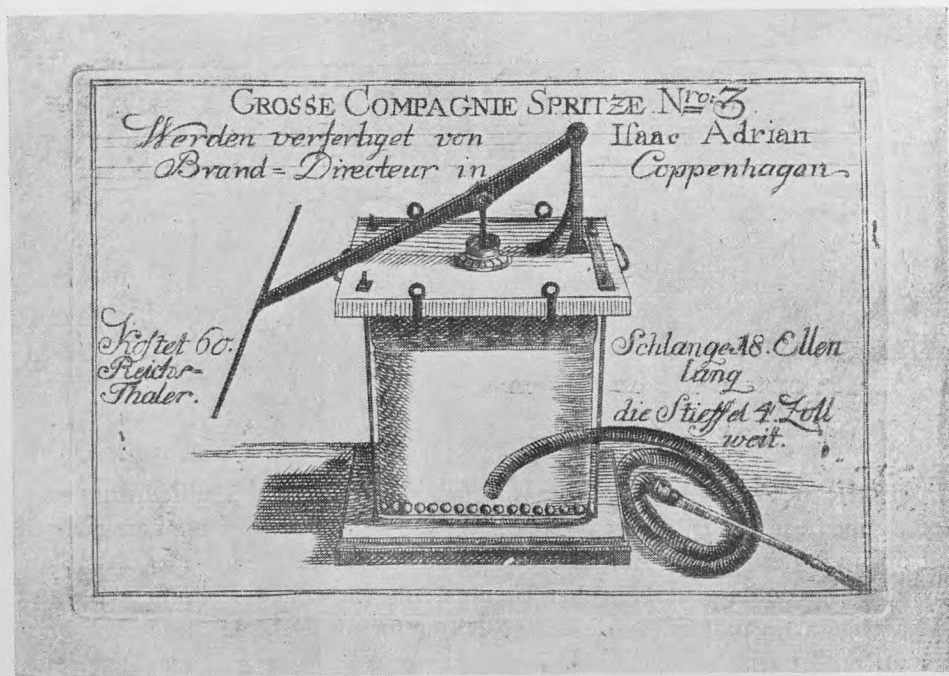 GROSSE COMPAGNIE SPRITZE. Nro: 3.
Werden verfertiget von Isaac Adrian
Brand=Directeur in Coppenhagen
Kostet 60.
Reichs=
Thaler.
Schlange 18. Ellen
lang
die Stieffel 4. Zoll
weit.